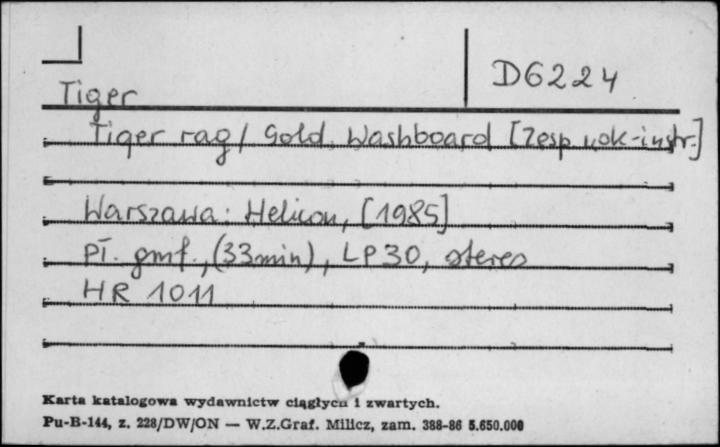 D6224
Tiger
Tiger rag / Gold Washboard [Zesp. wok-instr.]
Warszawa : Helicon, [1985]
Pł. gmf., (33 min), LP 30, stereo
HR 1011
Karta katalogowa wydawnictw ciągłych i zwartych.
Pu-B-144, z. 228/DW/ON — W.Z.Graf. Milicz, zam. 388-86 5.650.000